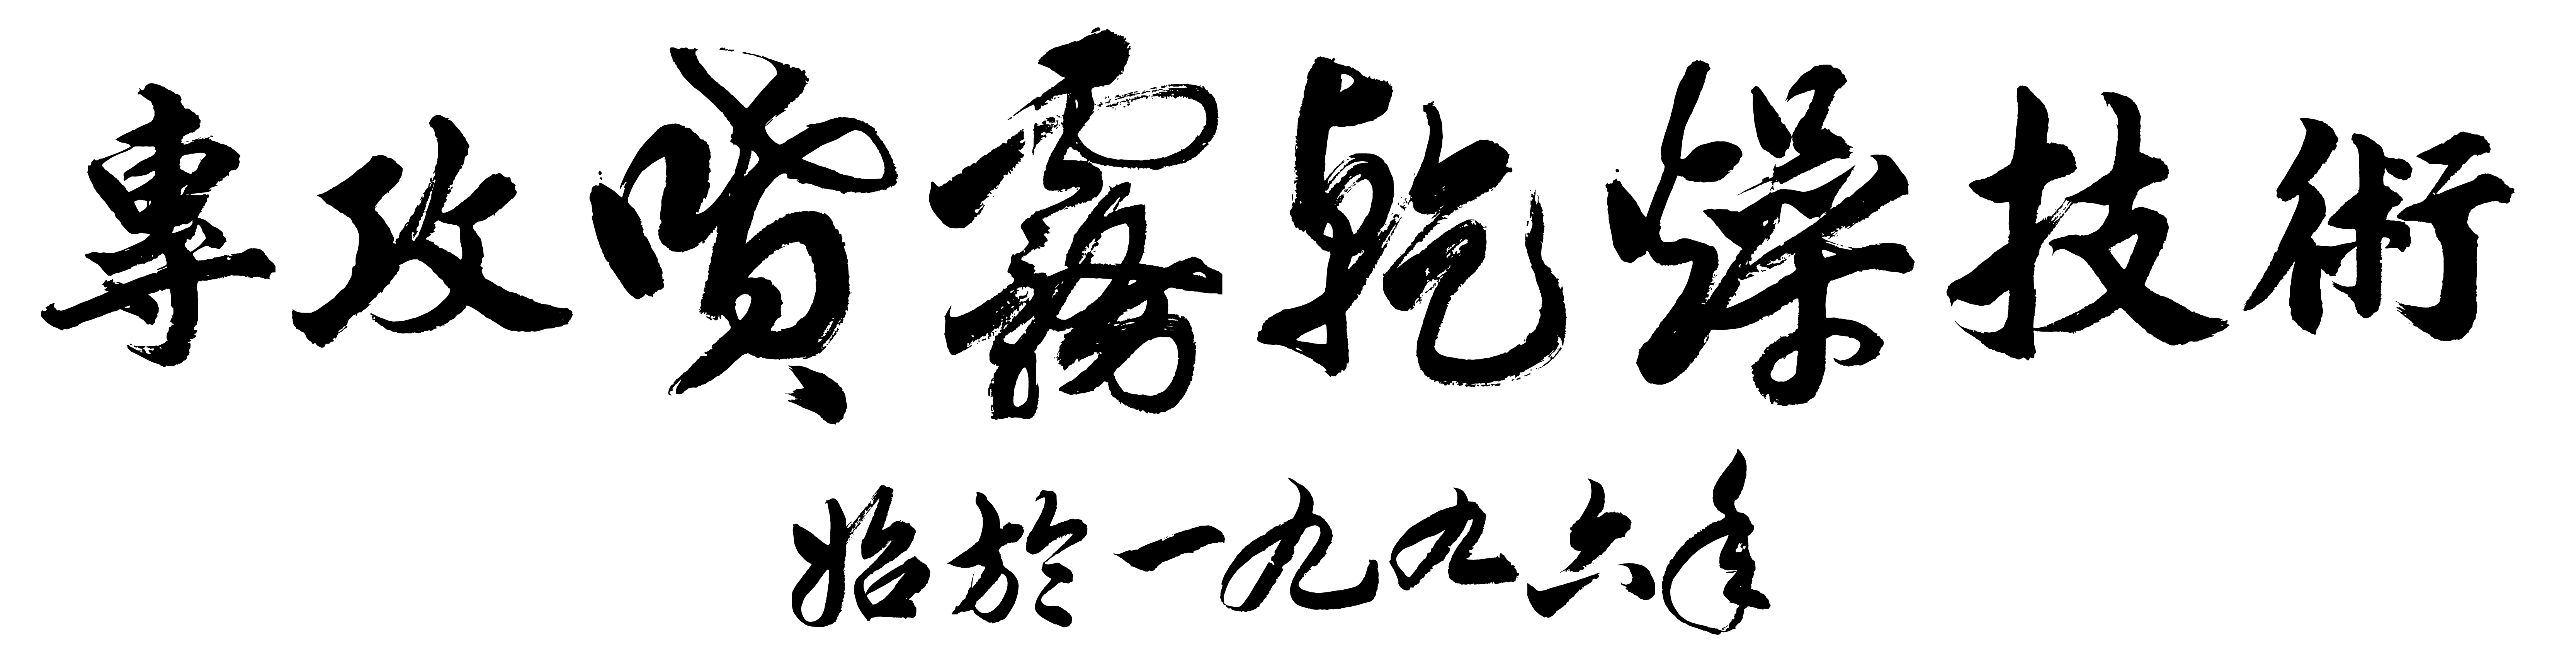 專攻噴霧乾燥技術
始於一九九六年